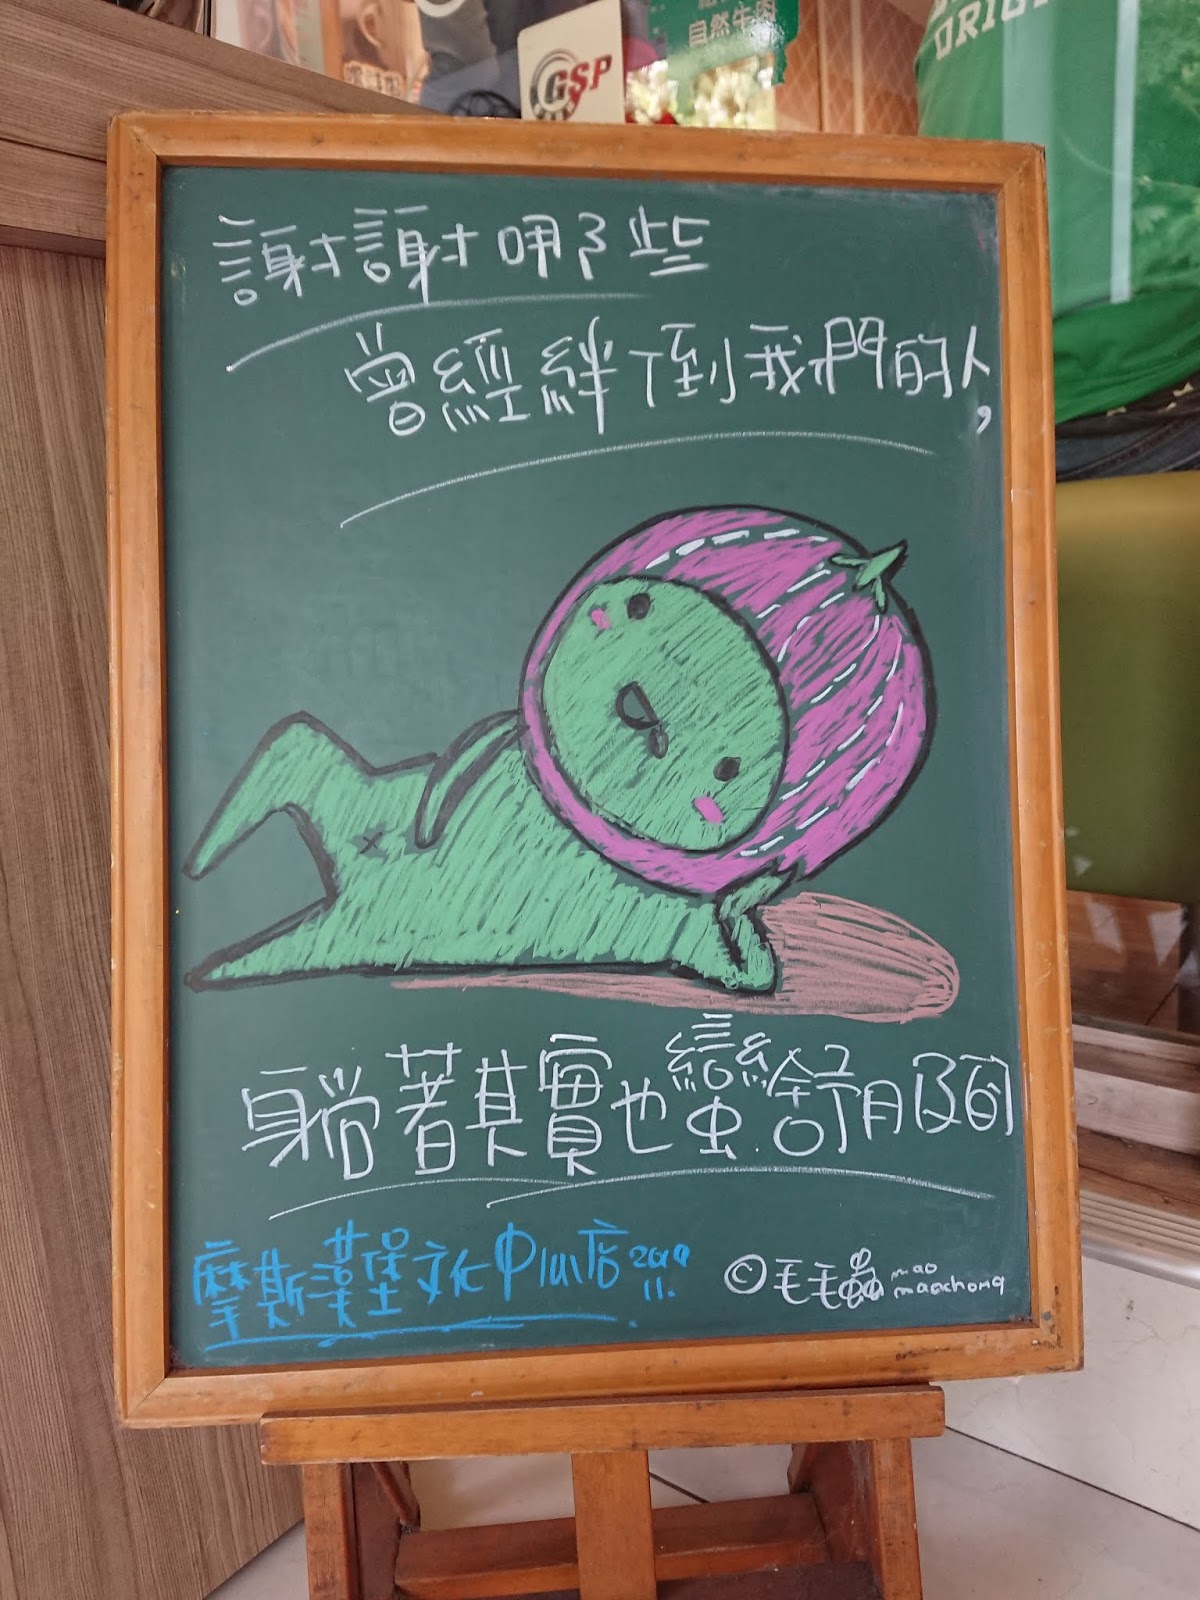 自然牛肉
GSP
謝謝哪些
曾經絆倒我們的人,
躺著其實也蠻舒服的
摩斯漢堡文化中山店 2019 11.
©毛毛蟲 mao maochong